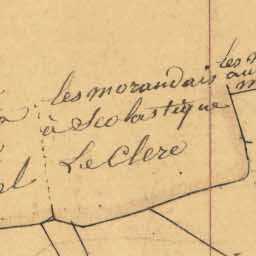 les morandais
à Scolastique
Le Clerc
les m
au